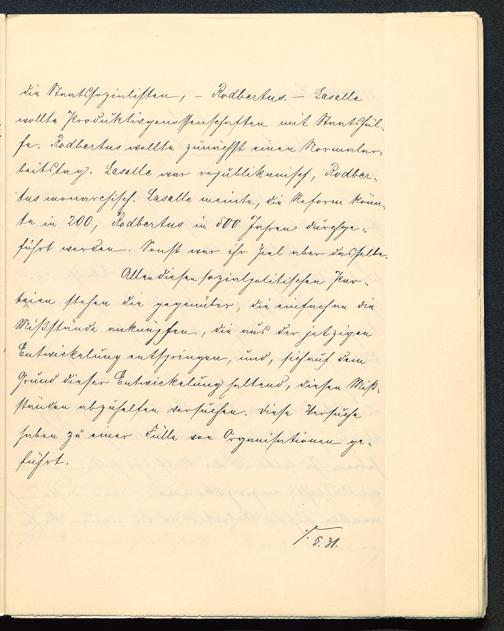 die Staatssozialisten, – Rodbertus. – Lasalle
wollte Produktivgenossenschaften mit Staatshül-
fe. Rodbertus wollte zunächst einen Normalar-
beitstag. Lasalle war republikanisch, Rodber-
tus monarchisch. Lasalle meinte, die Reform könn-
te in 200, Rodbertus in 500 Jahren durchge-
führt werden. Sonst war ihr Ziel aber dasselbe.
Allen diesen sozialpolitischen Par-
teien stehen die gegenüber, die einfach an die
Mißstände anknüpfen, die aus der jetzigen
Entwickelung entspringen, und, sich auf dem
Grund dieser Entwickelung haltend, diesen Miß-
ständen abzuhelfen versuchen. Diese Versuche
haben zu einer Fülle von Organisationen ge-
führt.
S. 31.